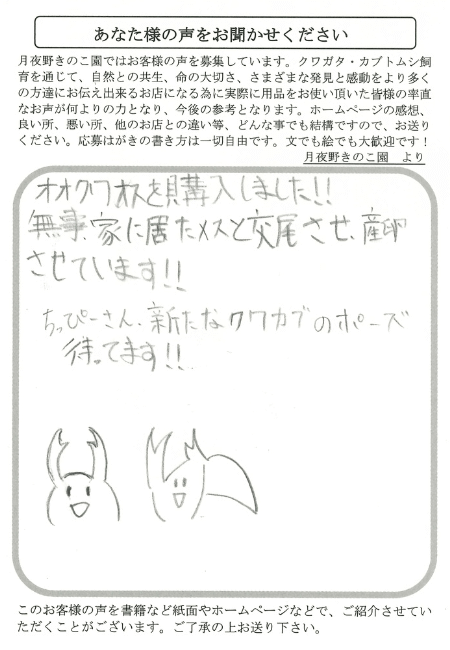 あなた様の声をお聞かせください
月夜野きのこ園ではお客様の声を募集しています。クワガタ・カブトムシ飼
育を通じて、自然との共生、命の大切さ、さまざまな発見と感動をより多く
の方達にお伝え出来るお店になる為に実際に用品をお使い頂いた皆様の率直
なお声が何よりの力となり、今後の参考となります。ホームページの感想、
良い所、悪い所、他のお店との違い等、どんな事でも結構ですので、お送り
ください。応募はがきの書き方は一切自由です。文でも絵でも大歓迎です！
月夜野きのこ園　より
オオクワオスを購入しました!!
無事、家に居たメスと交尾させ、産卵
させています!!
ちっぴーさん、新たなクワカブのポーズ
待ってます!!
このお客様の声を書籍など紙面やホームページなどで、ご紹介させてい
ただくことがございます。ご了承の上お送り下さい。